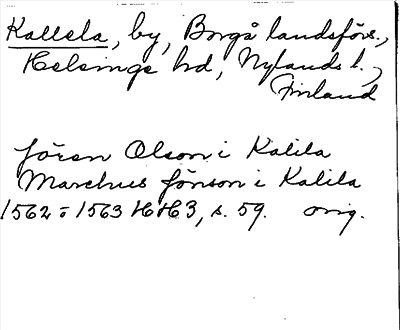 Kallela, by, Borgå landsförs.,
Helsinge hd, Nylands l.,
Finland
Jören Olson i Kalila
Marchus Jönson i Kalila
1562-1563 HH3, s. 59. orig.